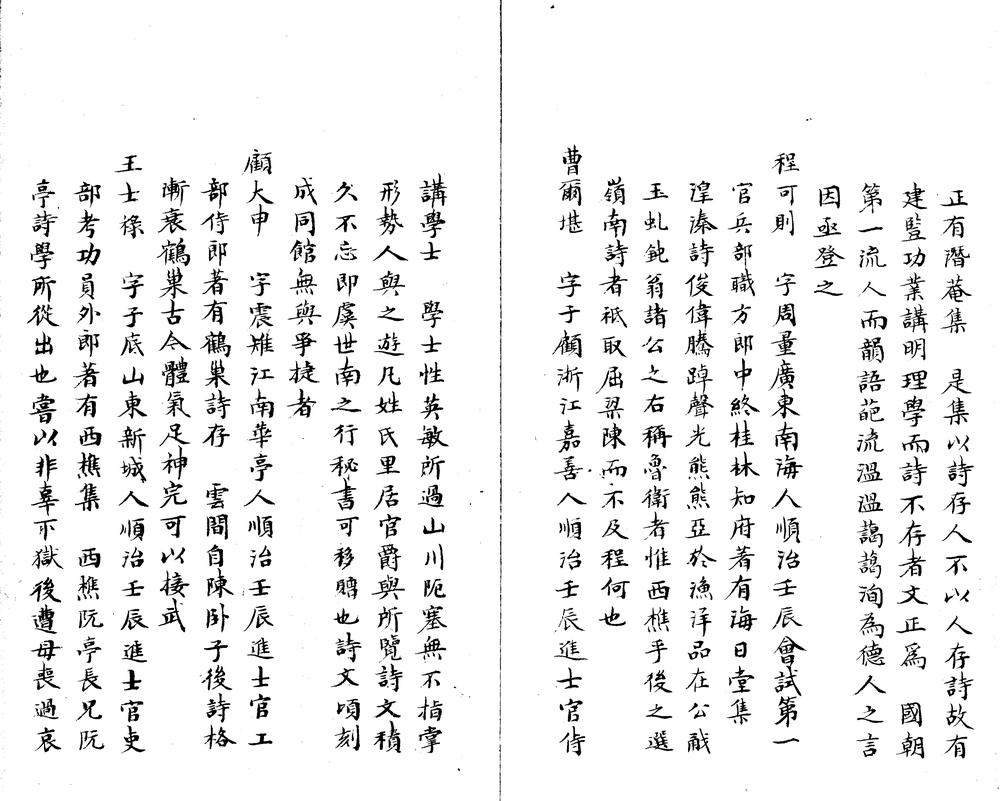 正有潛菴集　是集以詩存人不以人存詩故有
建豎功業講明理學而詩不存者文正爲　國朝
第一流人而韻語葩流溫溫藹藹洵為德人之言
因亟登之
程可則　字周量廣東南海人順治壬辰會試第一
官兵部職方郎中終桂林知府著有海日堂集
湟溱詩俊偉騰踔聲光熊熊亞於漁洋品在公㦸
玉虬鈍翁諸公之右稱魯衛者惟西樵乎後之選
嶺南詩者祇取屈梁陳而不及程何也
曹爾堪　字子顧浙江嘉善人順治壬辰進士官侍
講學士　學士性英敏所過山川阨塞無不指掌
形勢人與之遊凡姓氏里居官爵與所覽詩文積
久不忘即虞世南之行秘書可移贈也詩文頃刻
成同館無與爭捷者
顧大申　字震雉江南華亭人順治壬辰進士官工
部侍郎著有鶴巢詩存　雲間自陳卧子後詩格
漸衰鶴巢古今體氣足神完可以接武
王士祿　字子底山東新城人順治壬辰進士官吏
部考功員外郎著有西樵集　西樵阮亭長兄阮
亭詩學所從出也嘗以非辜下獄後遭母喪過哀